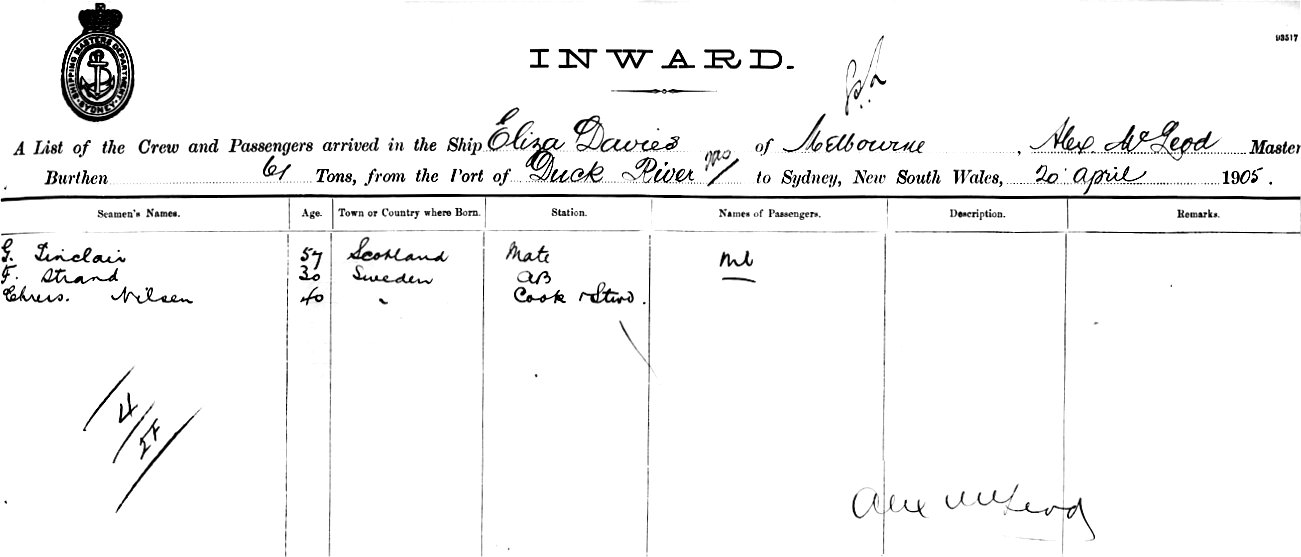 93517
SHIPPING MASTERS DEPARTMENT
SYDNEY
INWARD.
A List of the Crew and Passengers arrived in the Ship Eliza Davies of Melbourne, Alex. McLeod Master
Burthen 61 Tons, from the Port of Duck River to Sydney, New South Wales, 20 April 1905.
Seamen's Names. Age. Town or Country where Born. Station. Names of Passengers. Description. Remarks.
G. Sinclair 57 Scotland Mate Nil
F. Strand 30 Sweden AB
Chris. Nilsen 40 " Cook & Stwd.
4
Alex McLeod